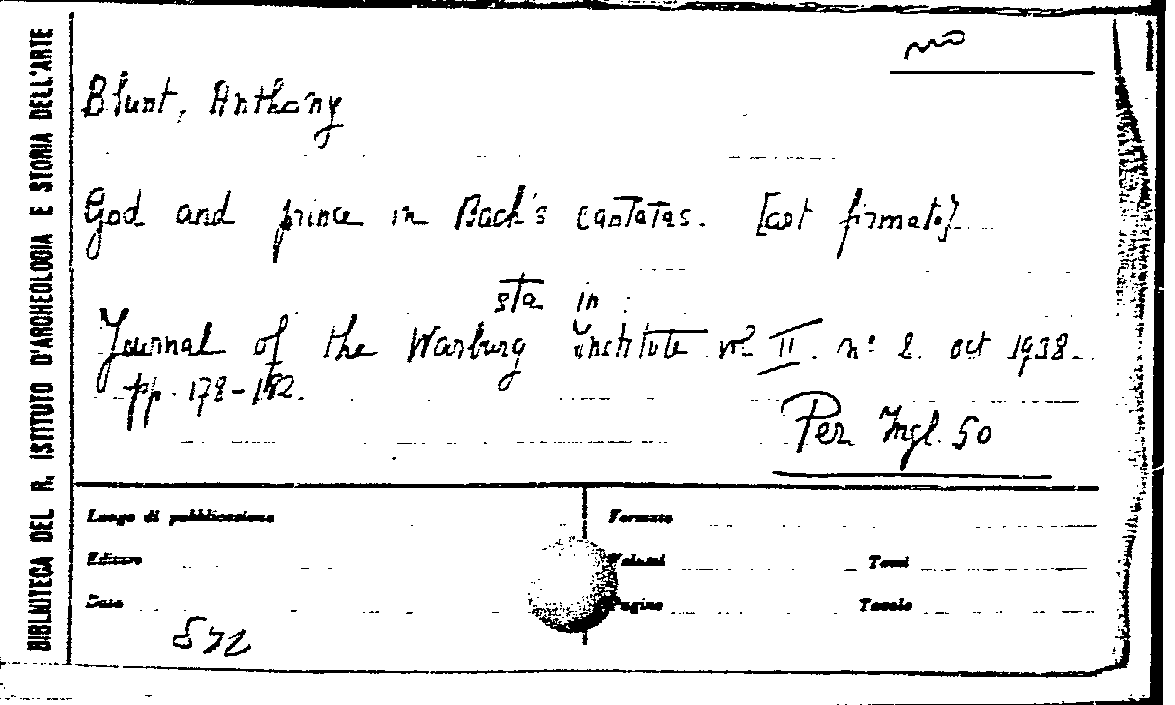 BIBLIOTECA DEL R. ISTITUTO D'ARCHEOLOGIA E STORIA DELL'ARTE
Blunt, Anthony
God and prince in Bach's cantatas. [art firmato]
sta in :
Journal of the Warburg Institute vol II. nº 2. oct 1938.
pp. 178-182.
Per Ingl. 50
Luogo di pubblicazione
Formato
Editore
Volumi
Tomi
Data
Pagine
Tavole
572